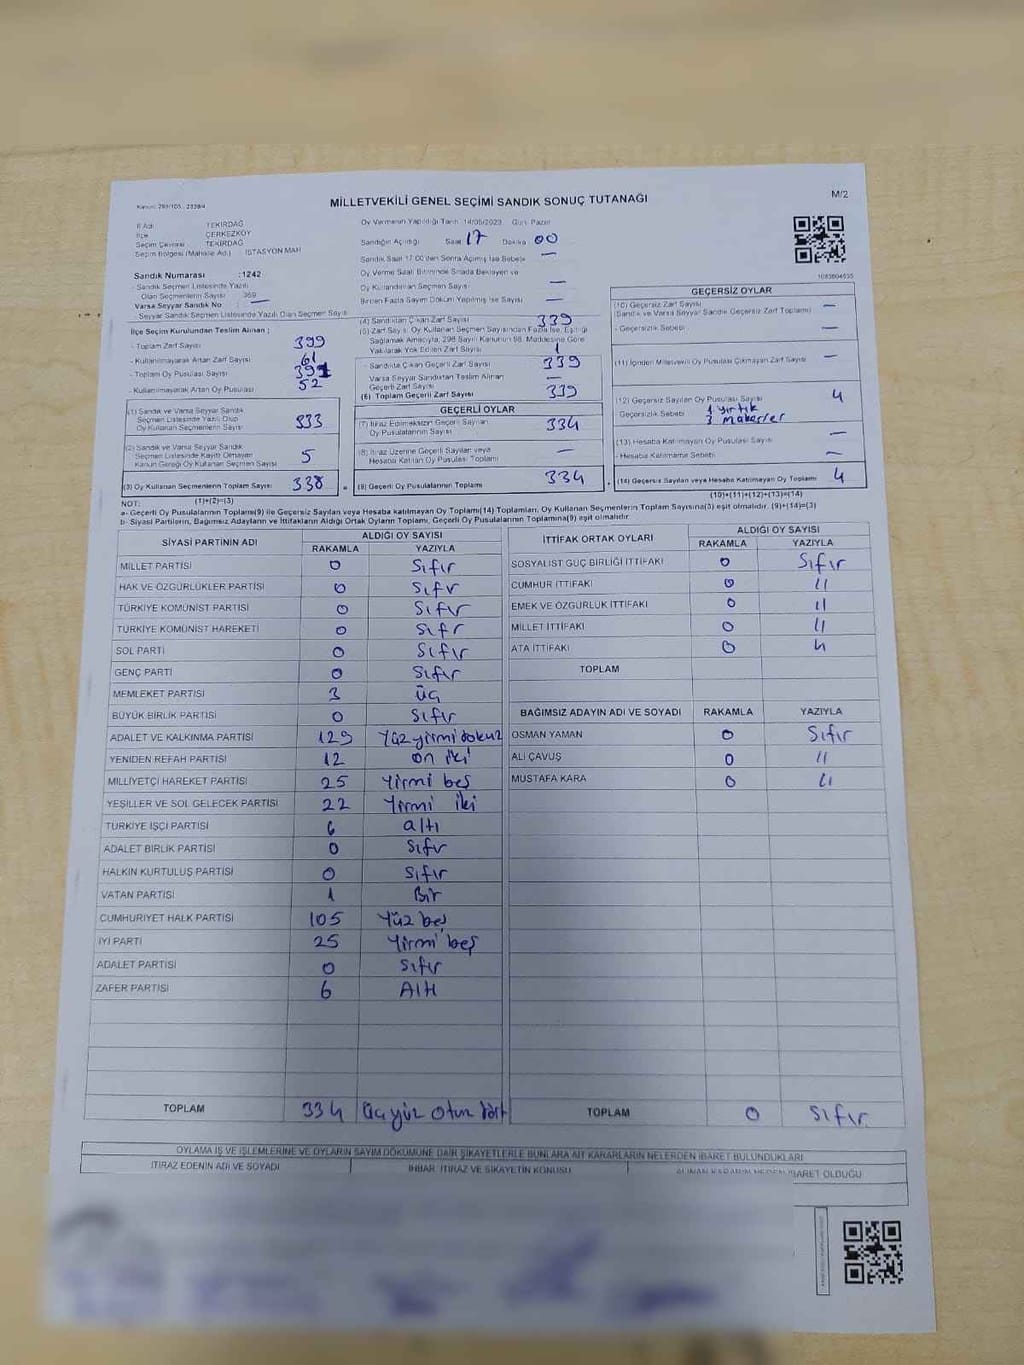 Kanun: 298/105
M/2
MİLLETVEKİLİ GENEL SEÇİMİ SANDIK SONUÇ TUTANAĞI
İl Adı TEKİRDAĞ
İlçe ÇERKEZKÖY
Seçim Çevresi TEKİRDAĞ
Seçim Bölgesi (Mahalle Adı) İSTASYON MAH
Sandık Numarası :1242
- Sandık Seçmen Listesinde Yazılı
Olan Seçmenlerin Sayısı 369
Varsa Seyyar Sandık No : —
- Seyyar Sandık Seçmen Listesinde Yazılı Olan Seçmen Sayısı
Oy Vermenin Yapıldığı Tarih 14/05/2023 Gün: Pazar
Sandığın Açıldığı Saat 17 Dakika 00
Sandık Saat 17.00'den Sonra Açılmış İse Sebebi —
Oy Verme Saati Bitiminde Sırada Bekleyen ve
Oy Kullandırılan Seçmen Sayısı —
Birden Fazla Sayım Döküm Yapılmış İse Sayısı —
İlçe Seçim Kurulundan Teslim Alınan ;
- Toplam Zarf Sayısı 399
- Kullanılmayarak Artan Zarf Sayısı 61
- Toplam Oy Pusulası Sayısı 391
- Kullanılmayarak Artan Oy Pusulası 52
(1) Sandık ve Varsa Seyyar Sandık
Seçmen Listesinde Yazılı Olup
Oy Kullanan Seçmenlerin Sayısı 333
(2) Sandık ve Varsa Seyyar Sandık
Seçmen Listesinde Kayıtlı Olmayan
Kanun Gereği Oy Kullanan Seçmen Sayısı 5
(3) Oy Kullanan Seçmenlerin Toplam Sayısı 338
(1)+(2)=(3)
(4) Sandıktan Çıkan Zarf Sayısı 339
(5) Zarf Sayısı, Oy Kullanan Seçmen Sayısından Fazla İse, Eşitliği
Sağlamak Amacıyla, 298 Sayılı Kanunun 98. Maddesine Göre
Yakılarak Yok Edilen Zarf Sayısı 1
- Sandıkta Çıkan Geçerli Zarf Sayısı 339
Varsa Seyyar Sandıktan Teslim Alınan
Geçerli Zarf Sayısı —
(6) Toplam Geçerli Zarf Sayısı 339
GEÇERLİ OYLAR
(7) İtiraz Edilmeksizin Geçerli Sayılan
Oy Pusulalarının Sayısı 334
(8) İtiraz Üzerine Geçerli Sayılan veya
Hesaba Katılan Oy Pusulası Toplamı —
(9) Geçerli Oy Pusulalarının Toplamı 334
GEÇERSİZ OYLAR
(10) Geçersiz Zarf Sayısı —
(Sandık ve Varsa Seyyar Sandık Geçersiz Zarf Toplamı)
- Geçersizlik Sebebi —
(11) İçinden Milletvekili Oy Pusulası Çıkmayan Zarf Sayısı —
(12) Geçersiz Sayılan Oy Pusulası Sayısı 4
Geçersizlik Sebebi 1 yırtık
(13) Hesaba Katılmayan Oy Pusulası Sayısı —
- Hesaba Katılmama Sebebi —
(14) Geçersiz Sayılan veya Hesaba Katılmayan Oy Toplamı 4
(10)+(11)+(12)+(13)=(14)
NOT:
a- Geçerli Oy Pusulalarının Toplamı(9) ile Geçersiz Sayılan veya Hesaba Katılmayan Oy Toplamı(14) Toplamları, Oy Kullanan Seçmenlerin Toplam Sayısına(3) eşit olmalıdır. (9)+(14)=(3)
b- Siyasi Partilerin, Bağımsız Adayların ve İttifakların Aldığı Ortak Oyların Toplamı, Geçerli Oy Pusulalarının Toplamına(9) eşit olmalıdır.
SİYASİ PARTİNİN ADI ALDIĞI OY SAYISI
RAKAMLA YAZIYLA
MİLLET PARTİSİ 0 Sıfır
HAK VE ÖZGÜRLÜKLER PARTİSİ 0 Sıfır
TÜRKİYE KOMÜNİST PARTİSİ 0 Sıfır
TÜRKİYE KOMÜNİST HAREKETİ 0 Sıfr
SOL PARTİ 0 Sıfır
GENÇ PARTİ 0 Sıfır
MEMLEKET PARTİSİ 3 üç
BÜYÜK BİRLİK PARTİSİ 0 Sıfır
ADALET VE KALKINMA PARTİSİ 129 Yüz yirmi dokuz
YENİDEN REFAH PARTİSİ 12 on iki
MİLLİYETÇİ HAREKET PARTİSİ 25 Yirmi beş
YEŞİLLER VE SOL GELECEK PARTİSİ 22 Yirmi iki
TÜRKİYE İŞÇİ PARTİSİ 6 altı
ADALET BİRLİK PARTİSİ 0 Sıfır
HALKIN KURTULUŞ PARTİSİ 0 Sıfır
VATAN PARTİSİ 1 Bir
CUMHURİYET HALK PARTİSİ 105 Yüz beş
İYİ PARTİ 25 Yirmi beş
ADALET PARTİSİ 0 Sıfır
ZAFER PARTİSİ 6 Altı
TOPLAM 334 Üçyüz otuz dört
İTTİFAK ORTAK OYLARI ALDIĞI OY SAYISI
RAKAMLA YAZIYLA
SOSYALİST GÜÇ BİRLİĞİ İTTİFAKI 0 Sıfır
CUMHUR İTTİFAKI 0 "
EMEK VE ÖZGÜRLÜK İTTİFAKI 0 "
MİLLET İTTİFAKI 0 "
ATA İTTİFAKI 0 "
TOPLAM
BAĞIMSIZ ADAYIN ADI VE SOYADI RAKAMLA YAZIYLA
OSMAN YAMAN 0 Sıfır
ALİ ÇAVUŞ 0 "
MUSTAFA KARA 0 "
TOPLAM 0 Sıfır
OYLAMA İŞ VE İŞLEMLERİNE VE OYLARIN SAYIM DÖKÜMÜNE DAİR ŞİKAYETLERLE BUNLARA AİT KARARLARIN NELERDEN İBARET BULUNDUKLARI
İTİRAZ EDENİN ADI VE SOYADI İHBAR, İTİRAZ VE ŞİKAYETİN KONUSU ALINAN KARARIN NEDEN İBARET OLDUĞU